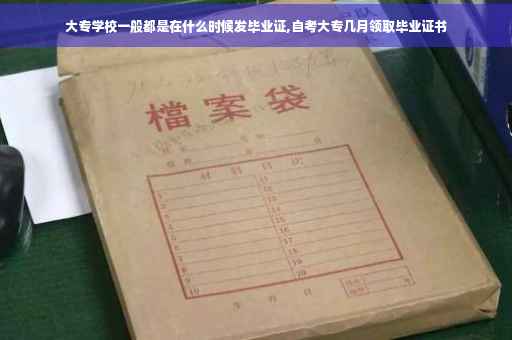 大专学校一般都是在什么时候发毕业证,自考大专几月领取毕业证书
檔案袋
材料目次
1 11
2 12
3 13
4 14
5 15
6 16
7 17
8 18
9 19
10 20
年 月 日